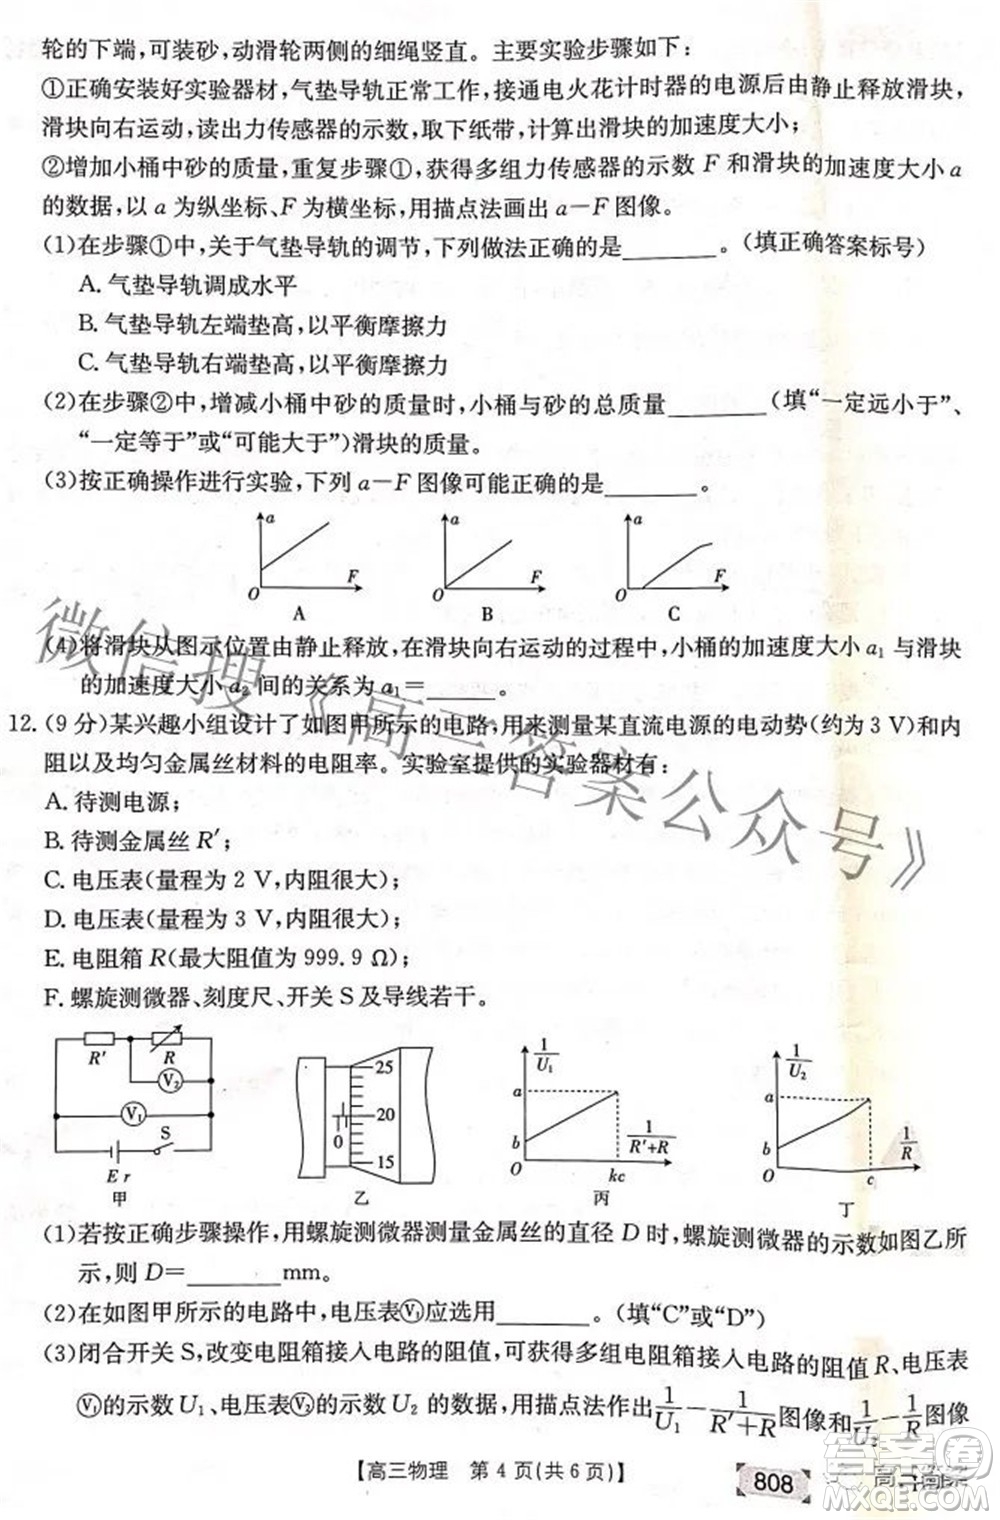 轮的下端,可装砂,动滑轮两侧的细绳竖直。主要实验步骤如下:
①正确安装好实验器材,气垫导轨正常工作,接通电火花计时器的电源后由静止释放滑块,
滑块向右运动,读出力传感器的示数,取下纸带,计算出滑块的加速度大小;
②增加小桶中砂的质量,重复步骤①,获得多组力传感器的示数 F 和滑块的加速度大小 a
的数据,以 a 为纵坐标、F 为横坐标,用描点法画出 a-F 图像。
(1)在步骤①中,关于气垫导轨的调节,下列做法正确的是________。(填正确答案标号)
A. 气垫导轨调成水平
B. 气垫导轨左端垫高,以平衡摩擦力
C. 气垫导轨右端垫高,以平衡摩擦力
(2)在步骤②中,增减小桶中砂的质量时,小桶与砂的总质量________(填“一定远小于”、
“一定等于”或“可能大于”)滑块的质量。
(3)按正确操作进行实验,下列 a-F 图像可能正确的是________。
a a a
O F O F O F
A B C
(4)将滑块从图示位置由静止释放,在滑块向右运动的过程中,小桶的加速度大小 a₁ 与滑块
的加速度大小 a₂ 间的关系为 a₁=______。
12.(9 分)某兴趣小组设计了如图甲所示的电路,用来测量某直流电源的电动势(约为 3 V)和内
阻以及均匀金属丝材料的电阻率。实验室提供的实验器材有:
A. 待测电源;
B. 待测金属丝 R′;
C. 电压表(量程为 2 V,内阻很大);
D. 电压表(量程为 3 V,内阻很大);
E. 电阻箱 R(最大阻值为 999.9 Ω);
F. 螺旋测微器、刻度尺、开关 S 及导线若干。
R′ R V₂ V₁ S E r 甲
25 20 15 0 乙
1/U₁ a b O kc 1/(R′+R) 丙
1/U₂ a b O c 1/R 丁
(1)若按正确步骤操作,用螺旋测微器测量金属丝的直径 D 时,螺旋测微器的示数如图乙所
示,则 D=________mm。
(2)在如图甲所示的电路中,电压表Ⓥ₁应选用________。(填“C”或“D”)
(3)闭合开关 S,改变电阻箱接入电路的阻值,可获得多组电阻箱接入电路的阻值 R、电压表
Ⓥ₁的示数 U₁、电压表Ⓥ₂的示数 U₂ 的数据,用描点法作出 1/U₁ - 1/(R′+R) 图像和 1/U₂ - 1/R 图像
【高三物理 第 4 页(共 6 页)】
808
高三答案
微信搜《高三答案公众号》
答案圈
MXQE.COM